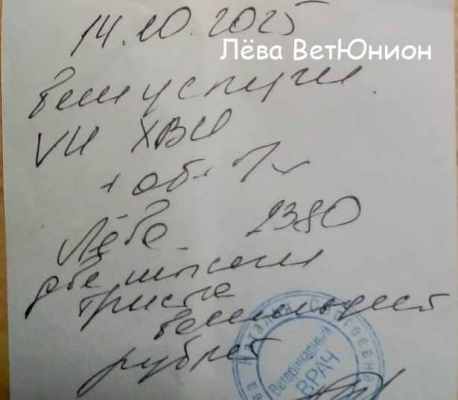 14.10.2025
Лёва ВетЮнион
Ветуслуги
УЗИ ХВП
Лёва 2380
две тысячи
триста
восемьдесят
рублей
Ветеринарный
ВРАЧ